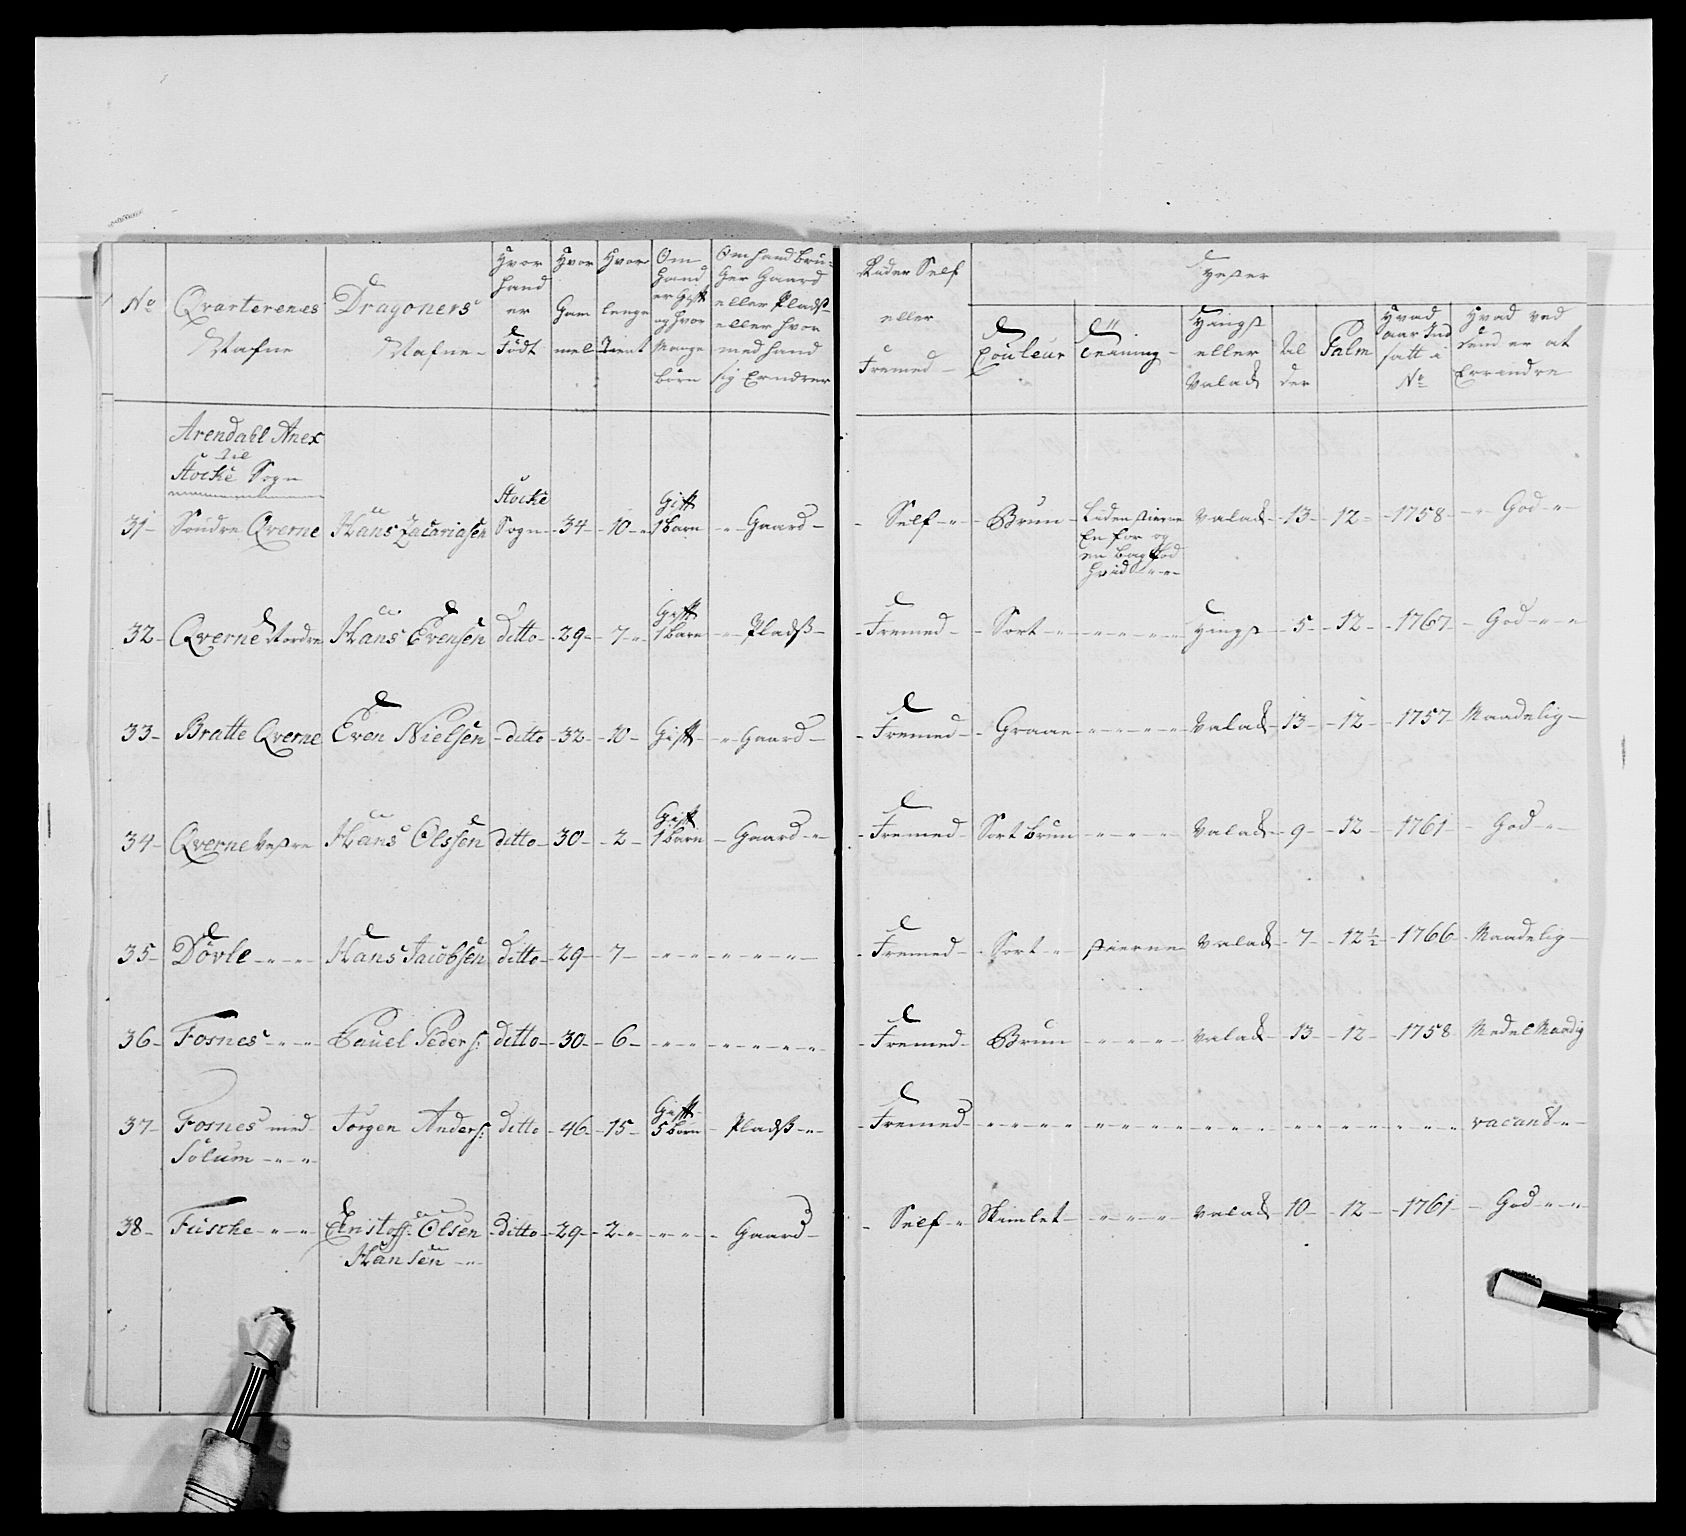 No
Qvarterenes Nafne
Dragoners Nafne
Hvor hand er Födt
Hvor Gammel
Hvor lenge Tient
Om hand er Gift og hvor Mange börn
Om hand bruger Gaard eller Pladß eller hvor med hand sig Ernærer
Rider Self eller Fremed
Hester
Couleur
Teinning
Hingst eller Valak
Alder
Palm
Hvad aar Indsatt i No
Hvad ved dend er at Errindre
Arendahl Anex til Stocke Sogn
31 - Söndre Qverne Hans Zacariasen Stocke Sogn - 34 - 10 - Gift 1 Barn - Gaard - Self - Brun - Liden stierne En for og en bag fod hvid - Valak - 13 - 12 - 1758 - God
32 - Qverne Nordre Hans Evensen ditto - 29 - 7 - Gift 1 Barn - Pladß - Fremed - Sort - Hingst - 5 - 12 - 1767 - God
33 - Bratte Qverne Even Nielsen - ditto - 32 - 10 - Gift - Gaard - Fremed - Graae - Valak - 13 - 12 - 1757 - Maadelig
34 - Qverne Vestre Hans Olssen ditto - 30 - 2 - Gift 1 Barn - Gaard - Fremed - Sort Brun - Valak - 9 - 12 - 1761 - God
35 - Dövle Hans Jacobsen ditto - 29 - 7 - Fremed - Sort - stierne - Valak - 7 - 12 1/2 - 1766 - Maadelig
36 - Fosnes Pauel Peders: ditto - 30 - 6 - Fremed - Brun - Valak - 13 - 12 - 1758 - Medel Maadig
37 - Fosnes med Solum Jörgen Anders: ditto - 46 - 15 - Gift 5 börn - Pladß - Fremed - vacant
38 - Fuske - Olsen Hansen ditto - 29 - 2 - Gaard - Self - Skimlet - Valak - 10 - 12 - 1761 - God